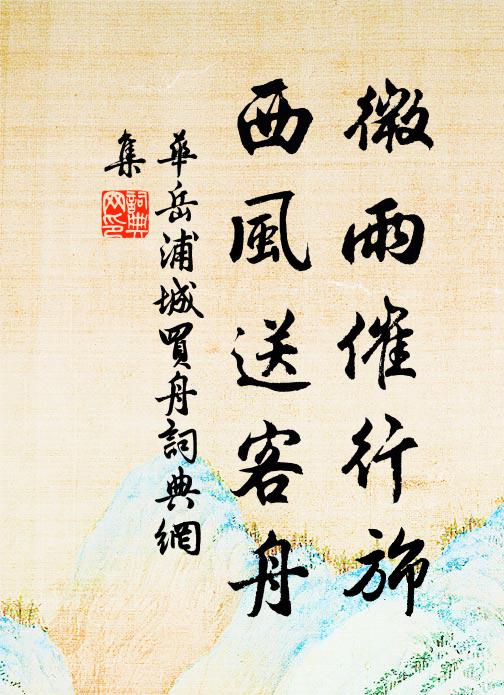 微雨催行旆
西風送客舟
華岳浦城買舟詞典網
集
詞典
网印